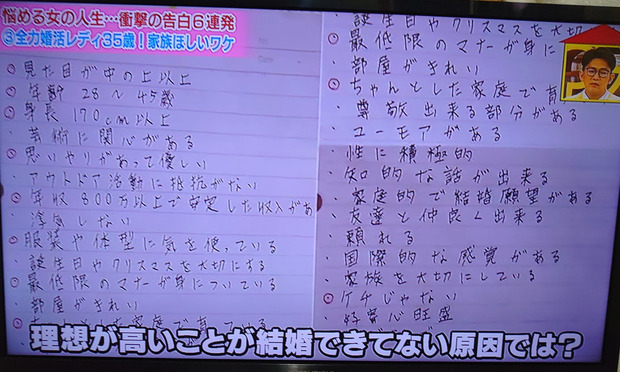 悩める女の人生…衝撃の告白6連発
③全力婚活レディ35歳!家族ほしいワケ
見た目が中の上以上
年齢 28〜45歳
身長 170cm以上
芸術に関心がある
思いやりがあって優しい
・アウトドア活動に抵抗がない
年収 800万以上で安定した収入があ
浮気しない
服装や体型に気を使っている
・誕生日やクリスマスを大切にする
最低限のマナーが身についている
・部屋がきれい
・誕生日やクリスマスを大切
最低限のマナーが身に
・部屋がきれい
ちゃんとした家庭で育
・尊敬出来る部分がある
・ユーモアがある
・性に積極的
・知的な話が出来る
・家庭的で結婚願望がある
・友達と仲良く出来る
・頼れる
・国際的な感覚がある
・家族を大切にしている
ケチじゃない
・好奇心旺盛
理想が高いことが結婚できてない原因では?